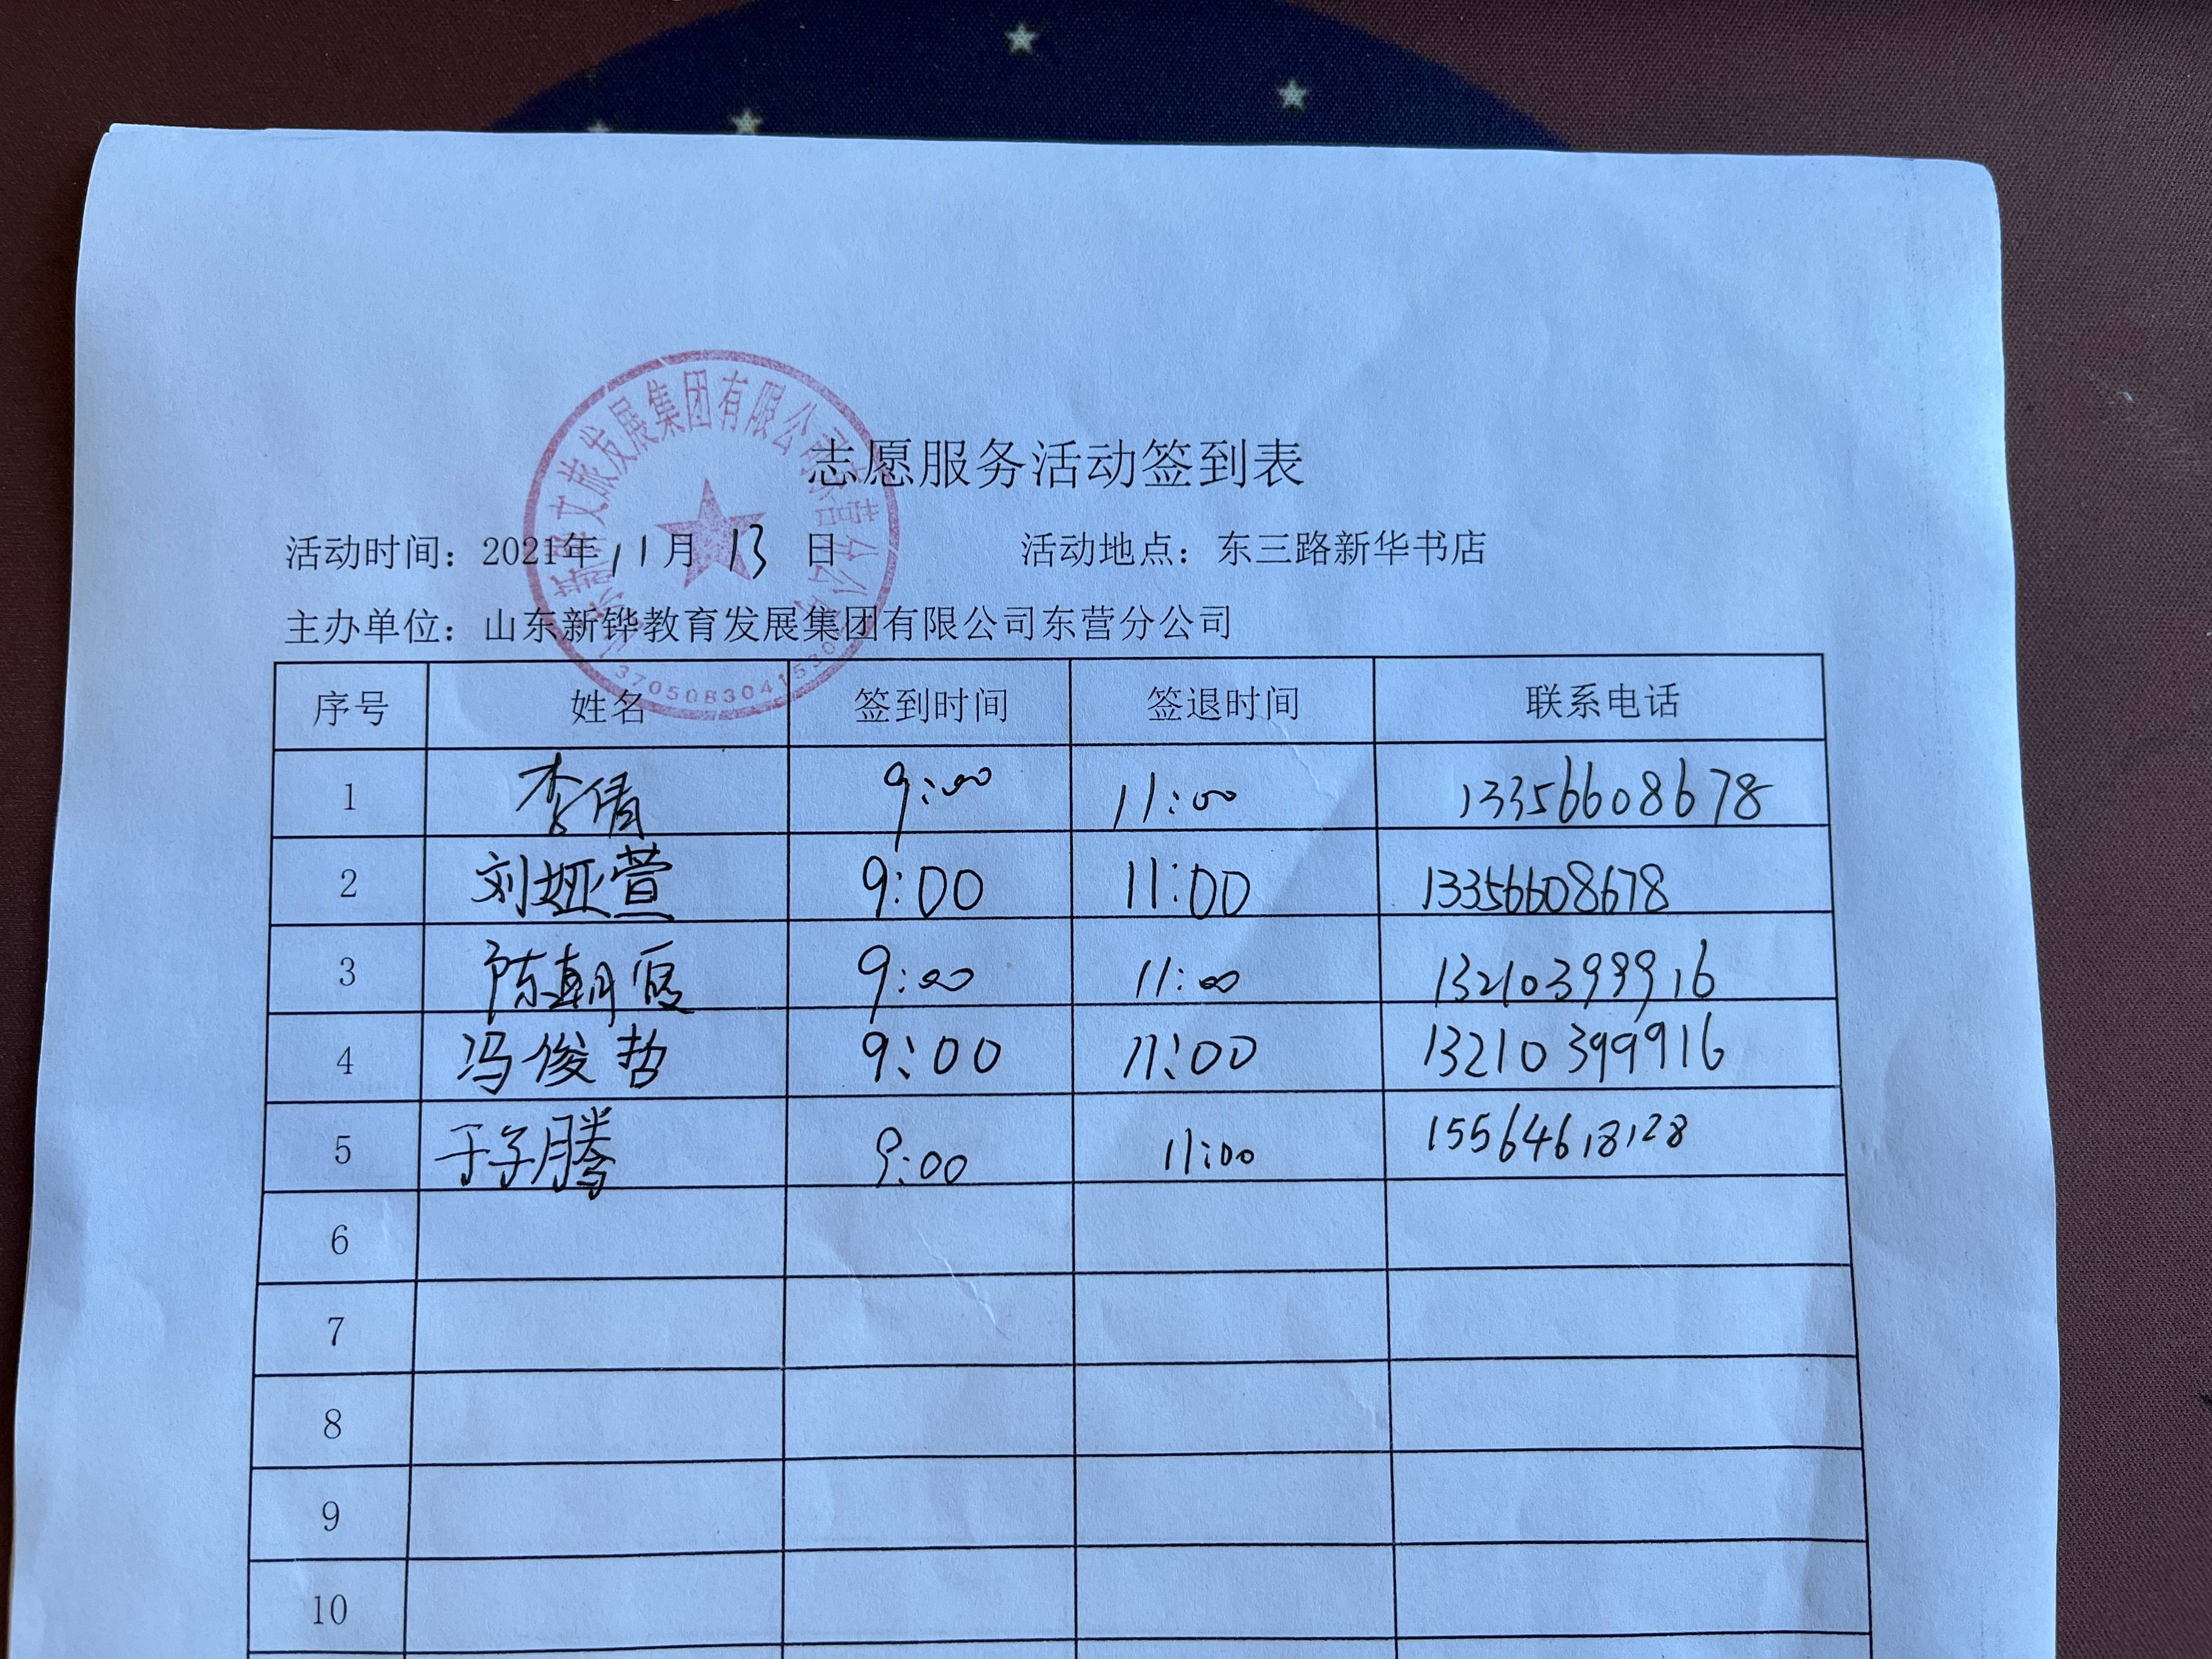 志愿服务活动签到表
活动时间：2021年11月13日 活动地点：东三路新华书店
主办单位：山东新铧教育发展集团有限公司东营分公司
序号 姓名 签到时间 签退时间 联系电话
1 李倩 9:00 11:00 13356608678
2 刘娅萱 9:00 11:00 13356608678
3 陈朝 9:00 11:00 13210399916
4 冯俊哲 9:00 11:00 13210399916
5 于子腾 9:00 11:00 15564618128
6
7
8
9
10
文旅发展集团有限公司东营分公司